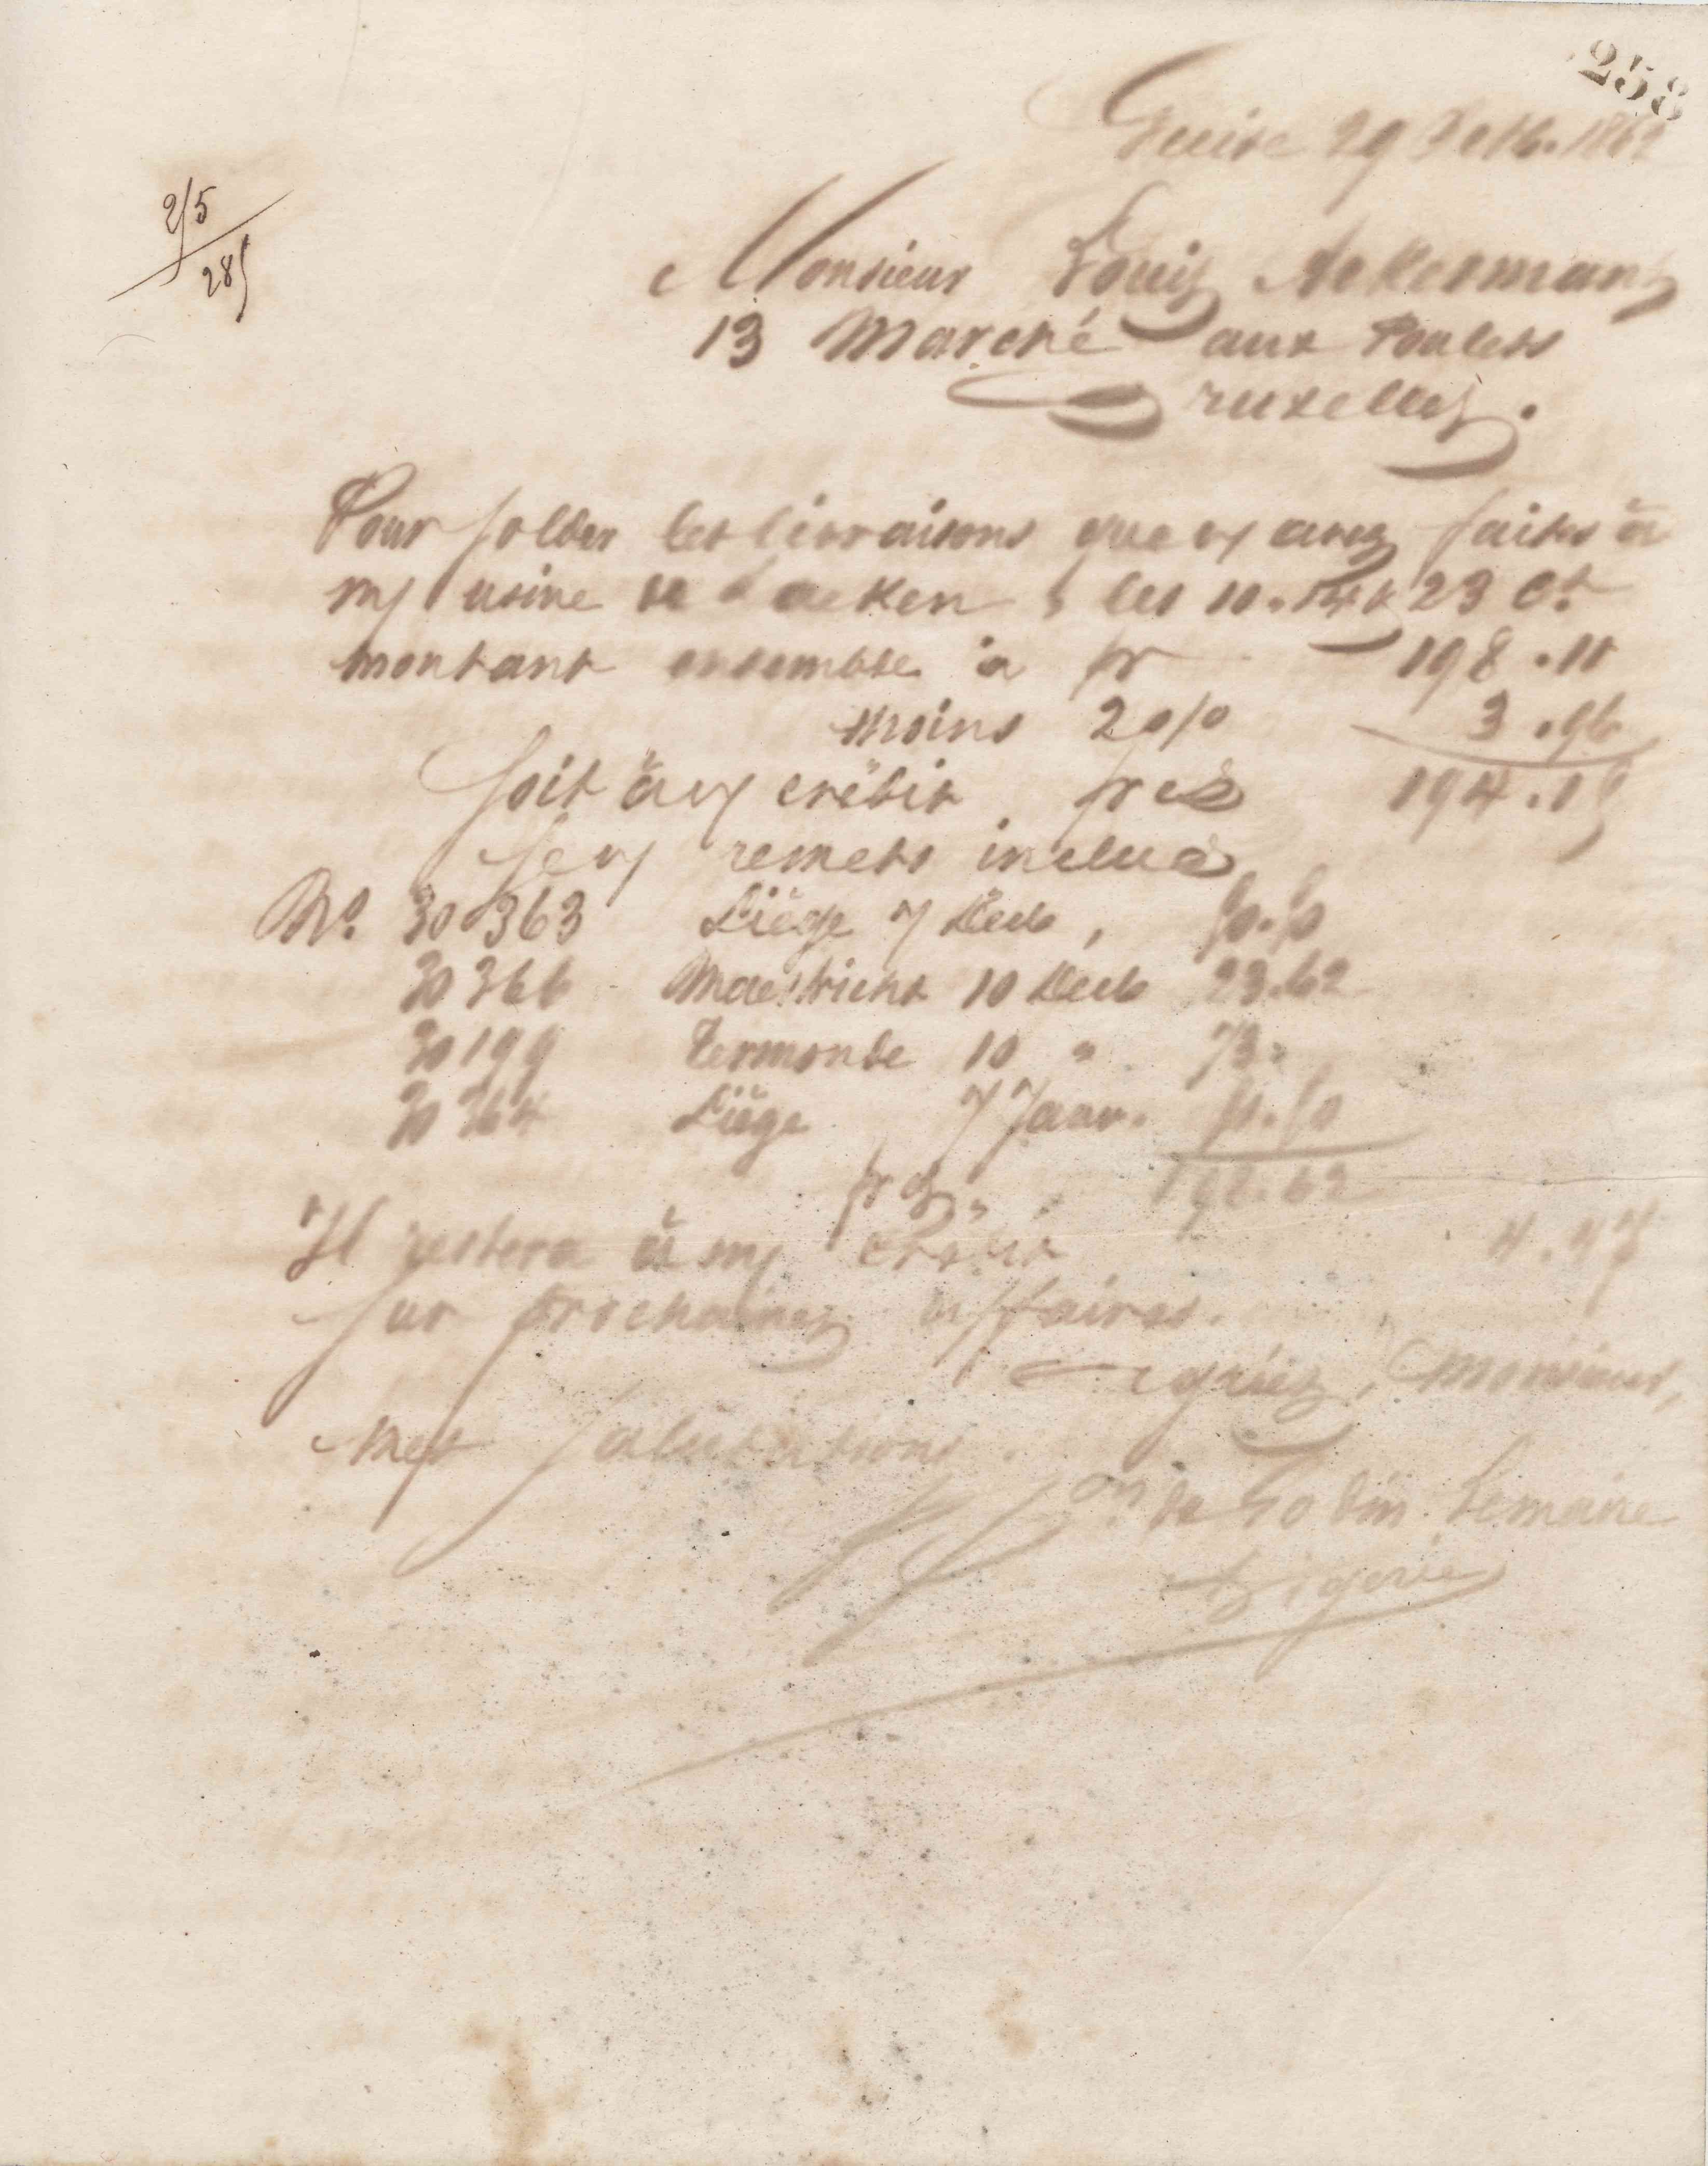 258
Guise 29 9bre 1862
215
285
Monsieur Louis Ackermans
13 Marché aux Poulets
Bruxelles.
Pour solder les livraisons que v/ avez faites à
m/ usine de Laeken les 10. 14 & 23 Ct
montant ensemble à fr 198.11
moins 2 o/o 3.96
Soit à v/ crédit frcs 194.15
Je v/ remets inclus
No. 30363 Liège 7 Decb, 50.50
30366 Maestricht 10 Decb 23.62
30199 Termonde 10 " 73.
30364 Liège 7 Janv.
frcs
Il restera à m/ Crédit
sur prochaines affaires.
Agréez, Monsieur,
mes salutations.
de Godin-Lemaire